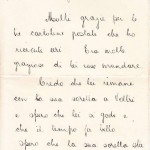 Molte grazie per le
tre cartoline postale che ho
ricevute ieri. Era molto
grazioso di lei cosi mandare.
Credo che lei rimane
con la sua sorella a Veltri
e spero che lei si gode e
che il tempo fa bello
Spero che la sua sorella sta